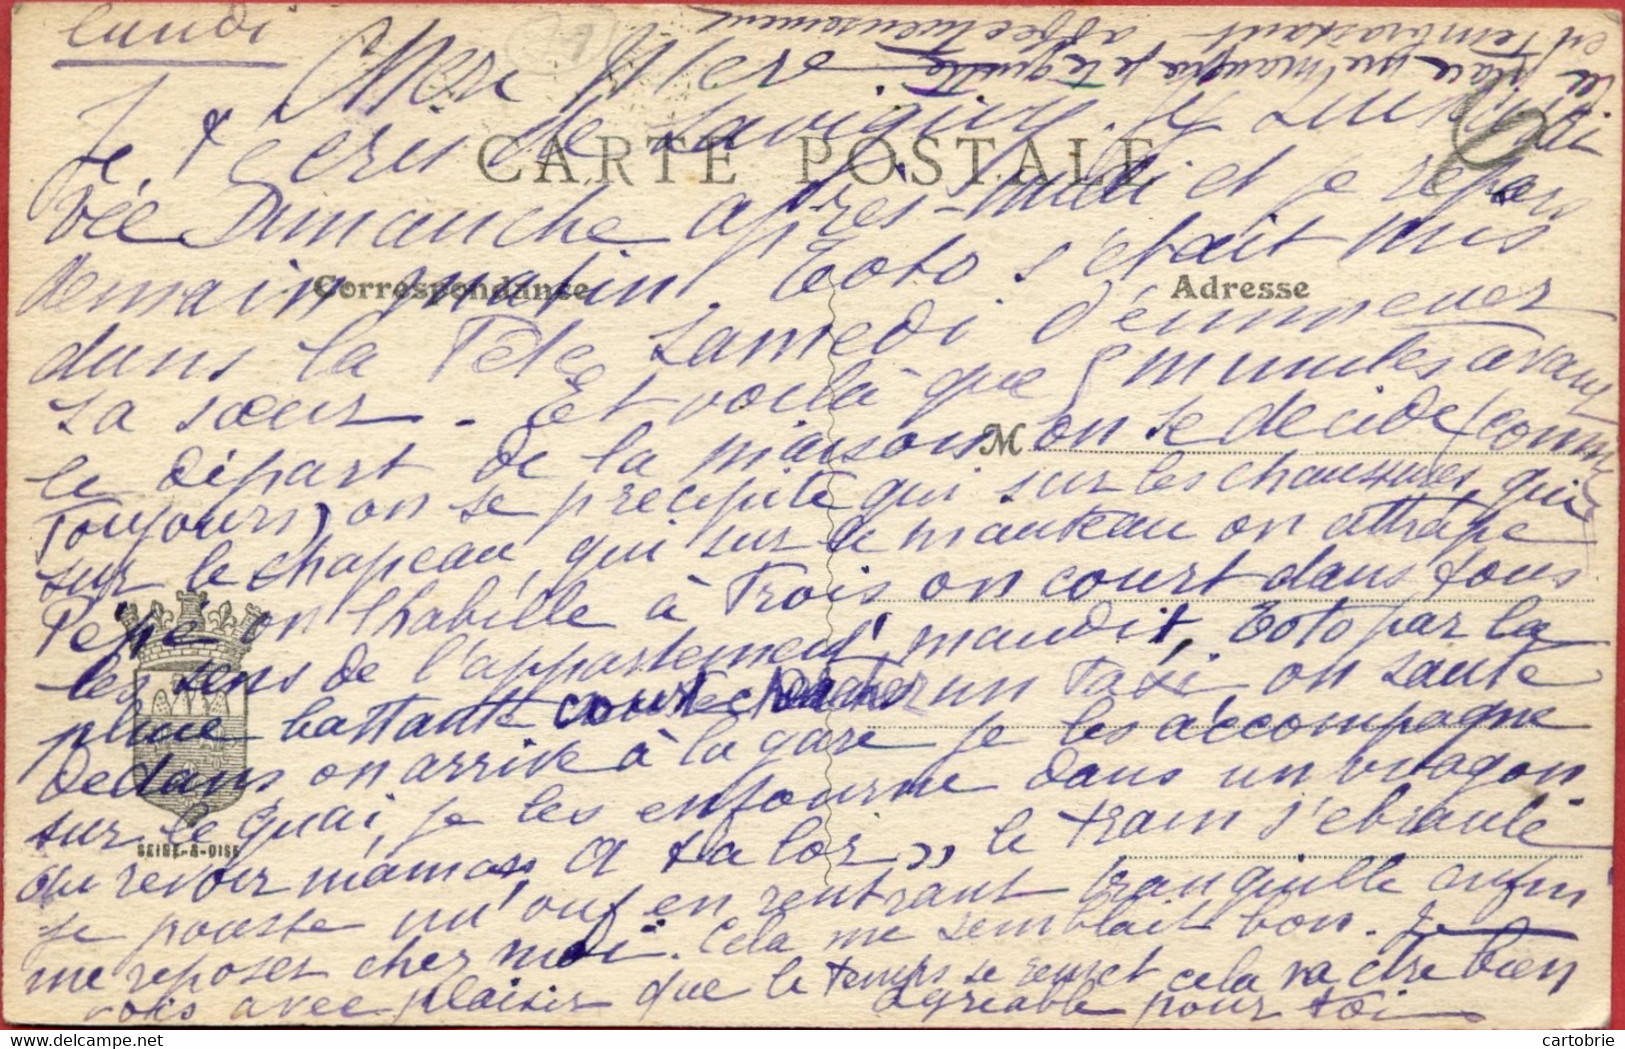 Lundi
Chère Mero
CARTE POSTALE
Je t'écris de Savigny. J'y suis arri
vée Dimanche après-midi et je repars
demain matin. Toto s'était mis
Correspondance
Adresse
dans la Tête Samedi d'emmener
sa sœur. - Et voilà que 5 minutes avant
le départ de la maison on se decide (comme
M
Toujours) on se précipite qui sur les chaussures, qui
sur le chapeau, qui sur le manteau on attrape
Pépé on l'habille à Trois on court dans tous
les sens de l'appartement maudit, Toto par la
pluie battante court chercher un Taxi on saute
dedans on arrive à la gare je les accompagne
sur le quai, je les enfourne dans un wagon.
SEINE-&-OISE
au revoir maman le train s'ébranle
je pousse un ouf en rentrant tranquille enfin
me reposer chez moi. Cela me semblait bon. Je
vois avec plaisir que le temps se remet cela va être bien
agréable pour toi
la place me manque je te quitte
en t'embrassant affectueusement
cartobrie